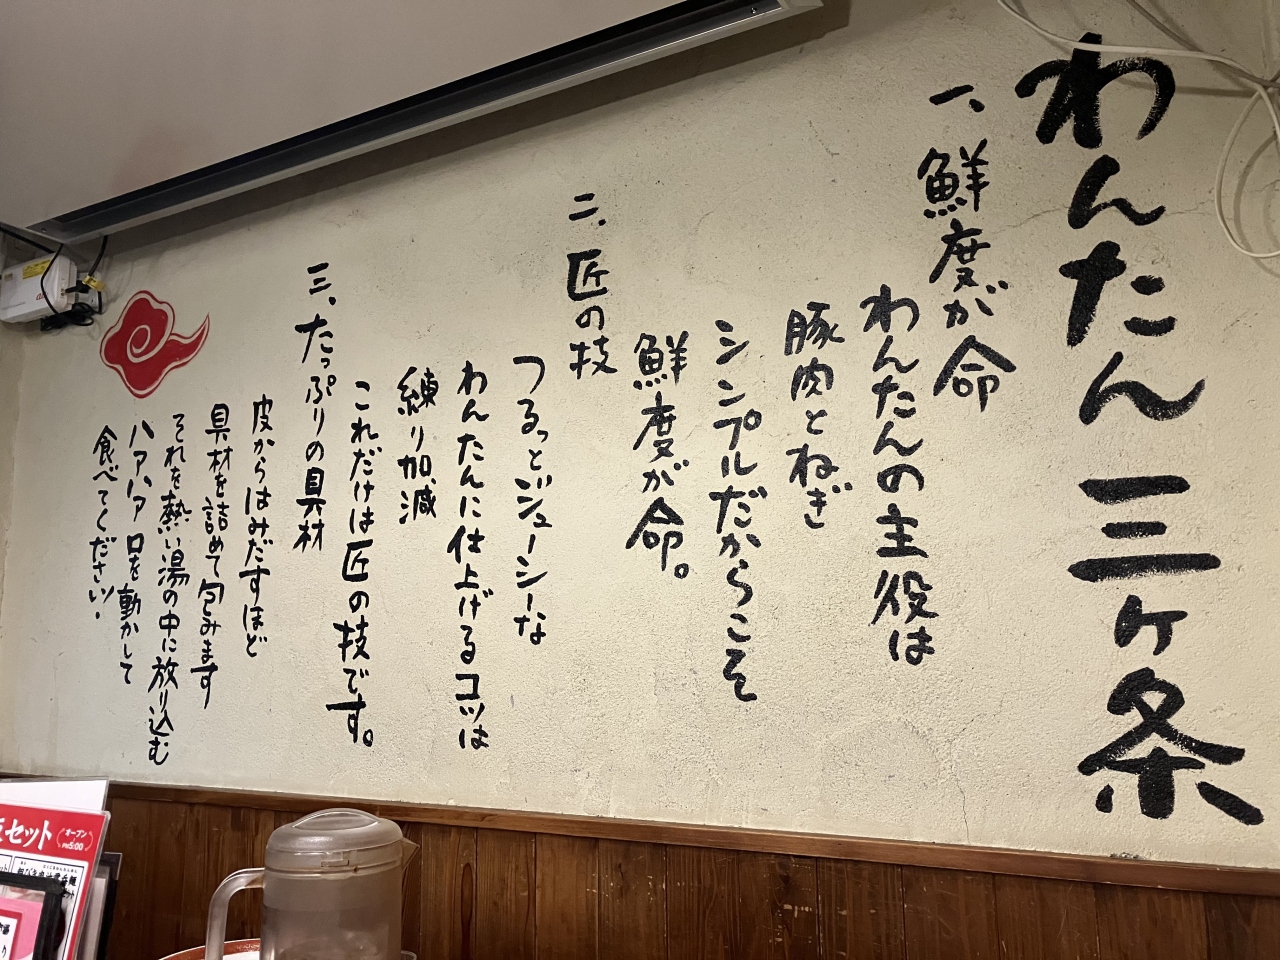 わんたん三ヶ条
一、鮮度が命
わんたんの主役は
豚肉とねぎ
シンプルだからこそ
鮮度が命。
二、匠の技
つるっとジューシーな
わんたんに仕上げるコツは
練り加減
これだけは匠の技です。
三、たっぷりの具材
皮からはみだすほど
具材を詰めて包みます
それを熱い湯の中に放り込む
ハァハァ口を動かして
食べてください!
セット
オープン
PM5:00